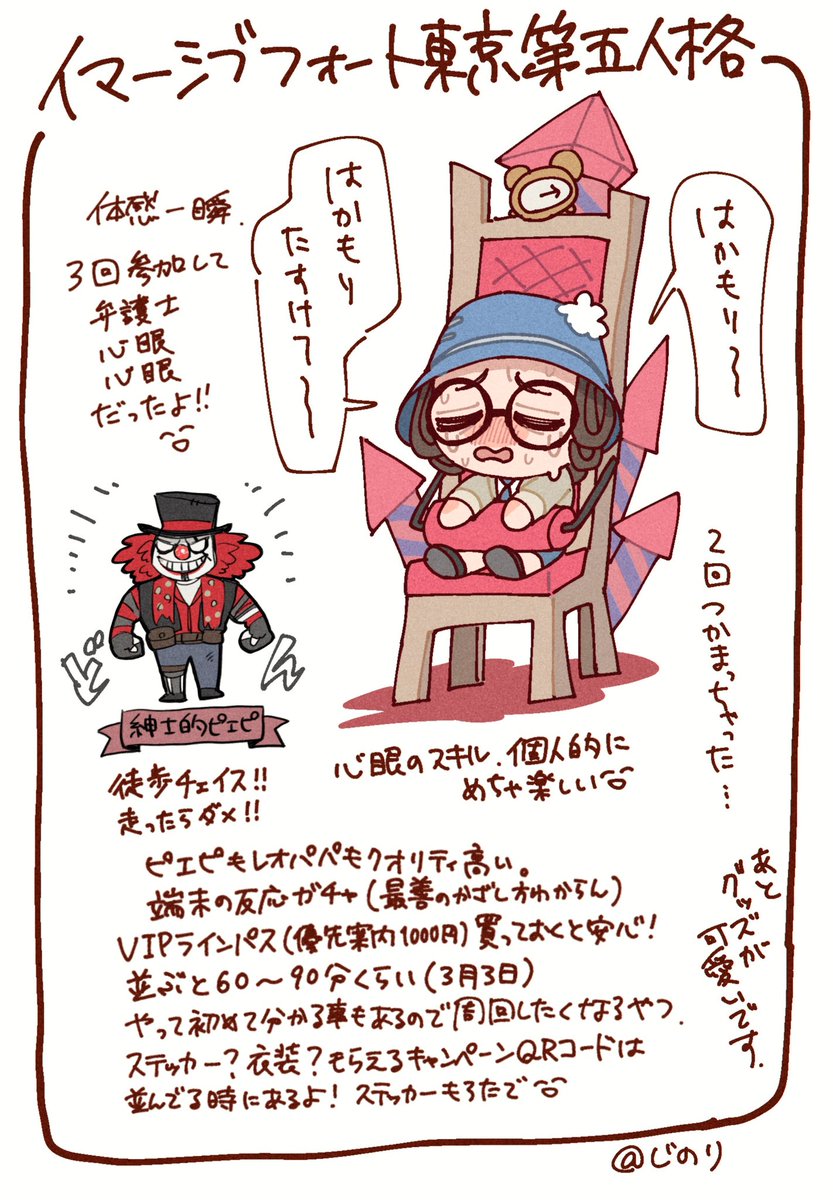 イマーシブフォート東京第五人格
体感一瞬.
3回参加して
弁護士
心眼
心眼
だったよ!!
はかもり
たすけて〜
はかもり〜
2回つかまっちゃった…
どん
紳士的ピエピ
徒歩チェイス!!
走ったらダメ!!
心眼のスキル、個人的に
めちゃ楽しい
ピエピもレオパパもクオリティ高い。
端末の反応ガチャ(最善のかざし方わからん)
VIPラインパス(優先案内1000円)買っておくと安心!
並ぶと60〜90分くらい(3月3日)
やって初めて分かる事もあるので周回したくなるやつ.
ステッカー?衣装?もらえるキャンペーンQRコードは
並んでる時にあるよ! ステッカーもろたで
あと
グッズが
可愛いです.
@じのり